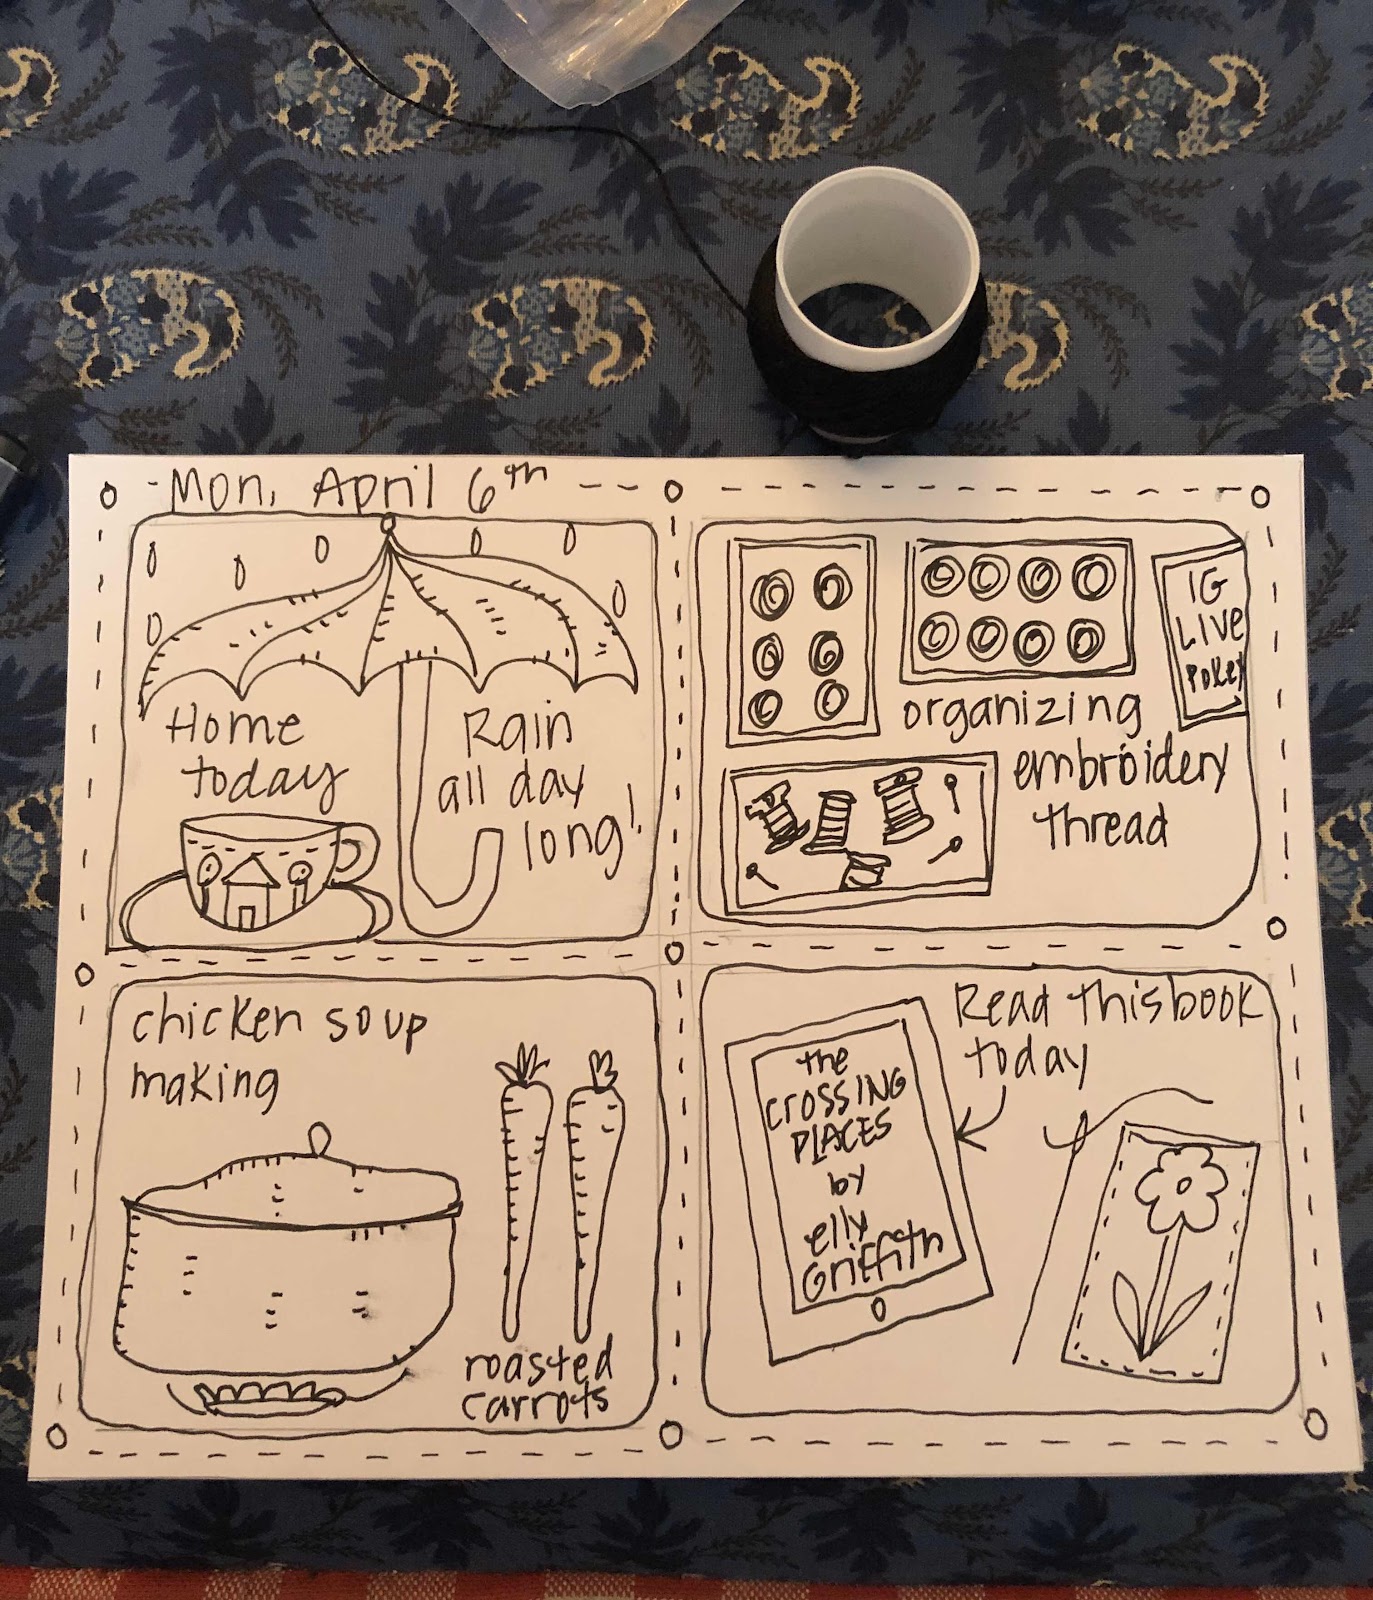 Mon, April 6th
Home
today
Rain
all day
long!
IG
LIVE
POKEY
organizing
embroidery
thread
chicken soup
making
roasted
carrots
Read this book
today
the
CROSSING
PLACES
by
elly
Griffith